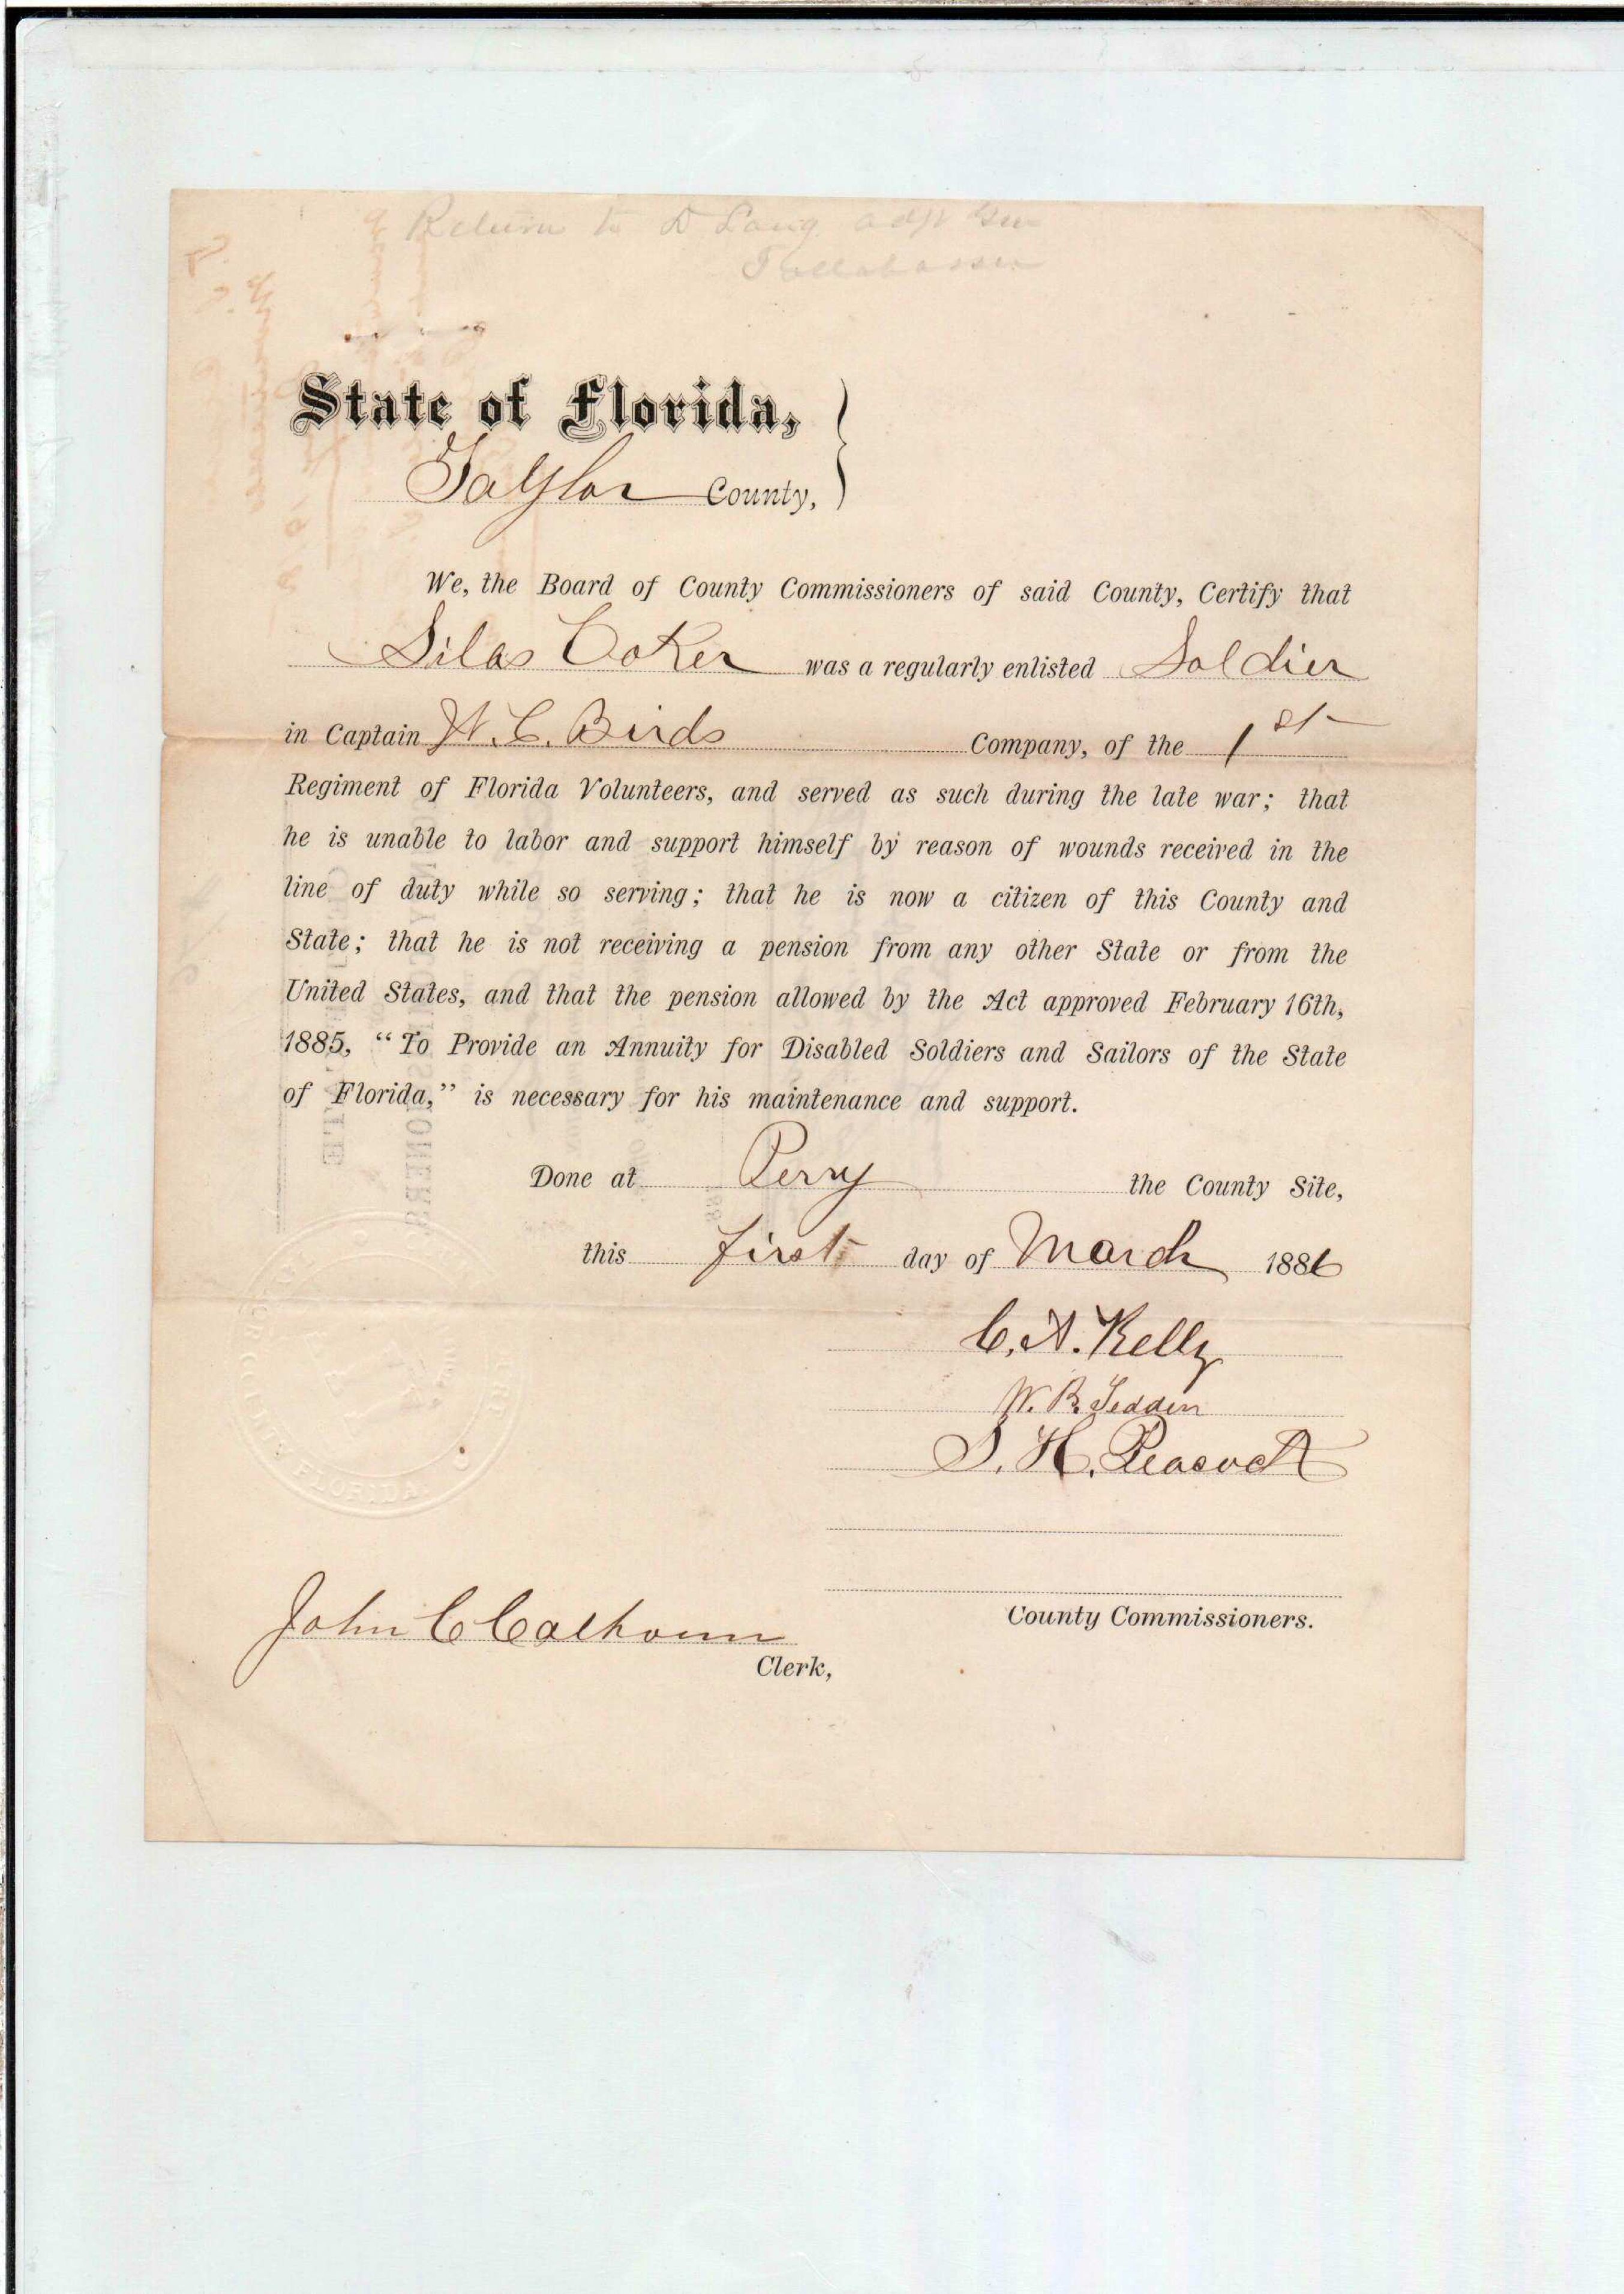 Return to D Lang adjt Gen
Tallahassee
State of Florida,
Taylor County,
We, the Board of County Commissioners of said County, Certify that
Silas Coker was a regularly enlisted Soldier
in Captain W. C. Birds Company, of the 1st
Regiment of Florida Volunteers, and served as such during the late war; that
he is unable to labor and support himself by reason of wounds received in the
line of duty while so serving; that he is now a citizen of this County and
State; that he is not receiving a pension from any other State or from the
United States, and that the pension allowed by the Act approved February 16th,
1885, "To Provide an Annuity for Disabled Soldiers and Sailors of the State
of Florida," is necessary for his maintenance and support.
Done at Perry the County Site,
this first day of March 1886
C. A. Kelly
W. B. Tedder
S. H. Peacock
County Commissioners.
John C Calhoun
Clerk,
FLORIDA.